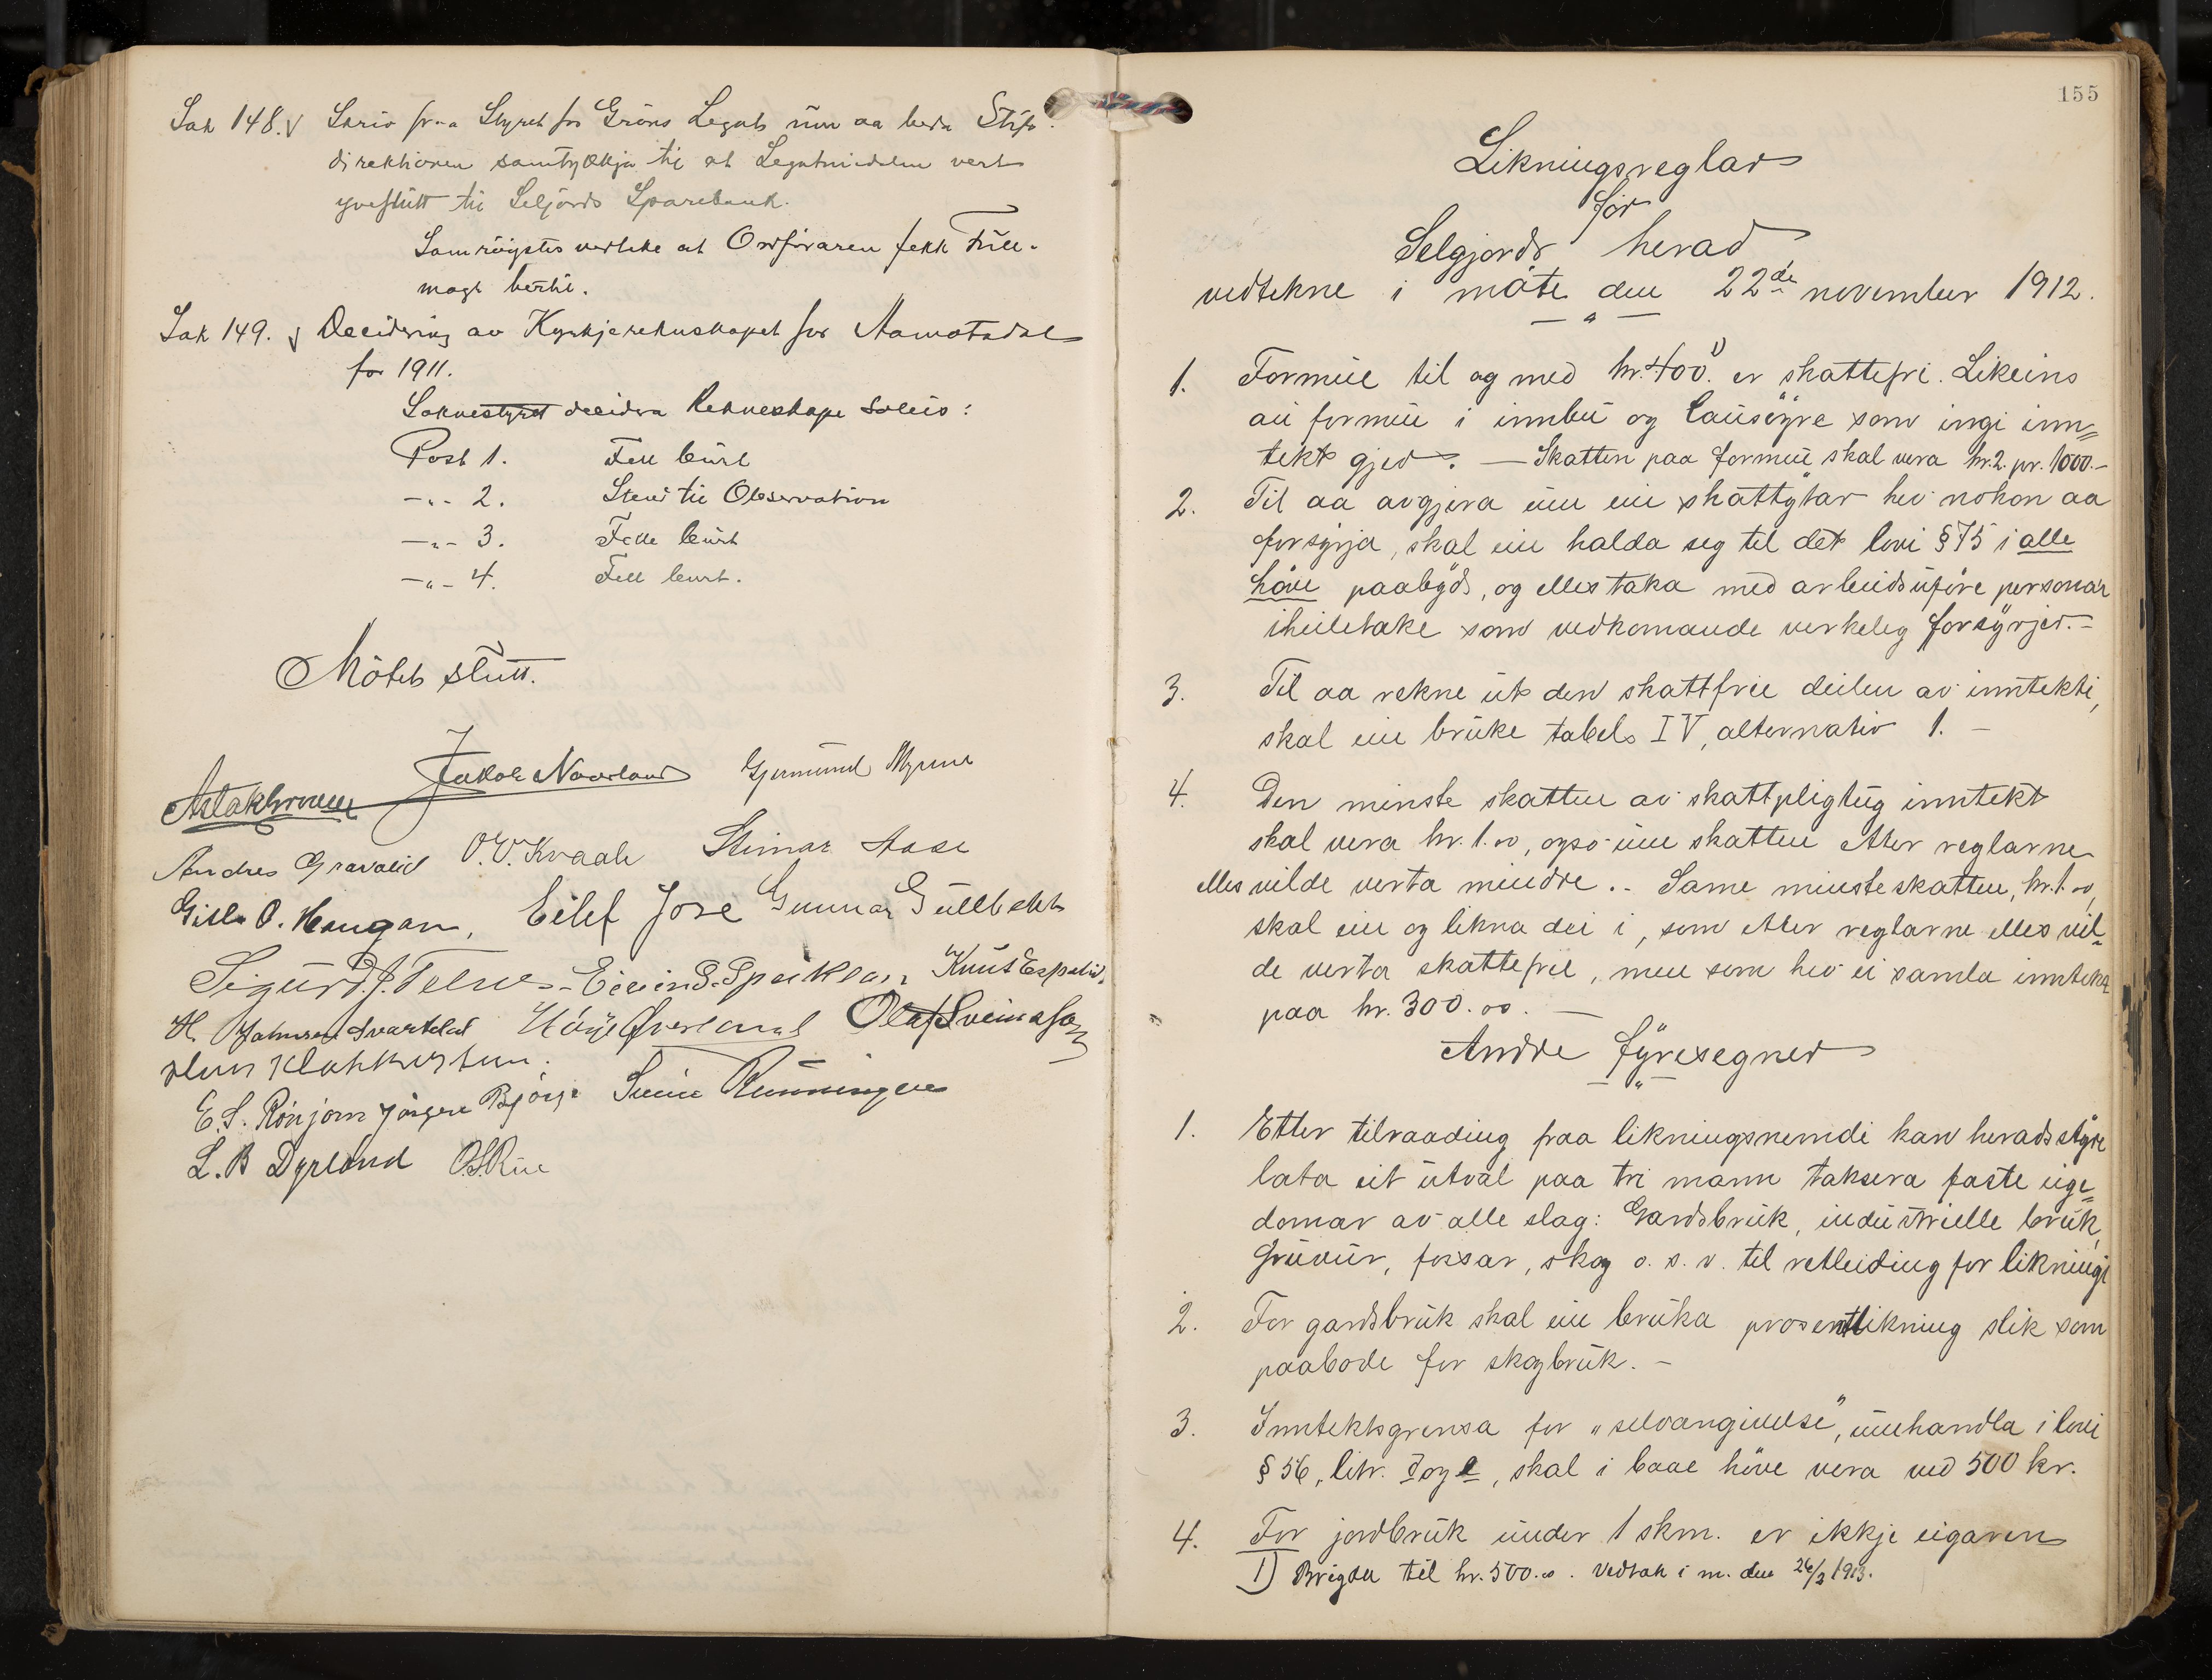 Sak 148. Skriv fraa Styret for Gröns Legat um aa beda Stifs-
direktionen samtykkja til at Legatmidelen vert
yveflutt til Seljords Sparebank.
Samröystes vedteke at Ordföraren fekk Full-
magt hertil.
Sak 149. Decidering av Kyrkjerekneskapet for Aamotsdal
for 1911.
Soknestyret decidera Rekneskape soleis:
Post 1. Fell burt
-"- 2. Stend til Observation
-"- 3. Fell burt
-"- 4. Fell burt.
Mötet slutt.
Jakob Naadland Gjermund Myrene
Aslak
Andres Gravalid O.V. Kvaale Steinar Aase
Gisle O. Haugan, Eilef Jore Gunnar Gullbekk
Sigurd J. Telnes Eivind Speiklan Knut Espelid
H. Johnsen Svartdal Höye Överland Olaf Sveinsson
E.S. Rönjom Jörgen Björge Svein Rünningen
L. B Dyrland O.S. Rue
155
Likningsreglar
for
Selgjords herad
vedtekne i möte den 22de november 1912.
1. Formue til og med kr. 400.1) er skattefri. Likeins
au formue i innbu og lausöyre som ingi inn=
tekt gjev. — Skatten paa formue skal vera kr. 2. pr. 1000.-
2. Til aa avgjera um ein skattytar hev nokon aa
forsyrja, skal ein halda seg til det lovi § 75 i alle
höve paabyd, og elles taka med arbeidsuföre personar
iheiletake som vedkomande verkeleg forsyrjer.-
3. Til aa rekne ut den skattfrie deilen av inntekti,
skal ein bruke tabels IV, alternativ 1. -
4. Den minste skatten av skattpligtug inntekt
skal vera kr. 1.00, ogso um skatten etter reglarne
elles vilde verta mindre.- Same minsteskatten, kr. 1.00,
skal ein og likna dei i, som etter reglarne elles vil-
de verta skattefrie, men som hev ei samla inntekt
paa kr. 300.00. —
Andre fyresegner
1. Etter tilraading fraa likningsnemdi kan heradsstyre
lata eit utval paa tri mann taksera faste eige=
domar av alle slag: Gardsbruk, industrielle bruk,
Gruvur, fossar, skog o. s. v. til retleiding for likningi
2. For gardsbruk skal ein bruka prosentlikning slik som
paabode for skogbruk. -
3. Inntektsgrensa for „selvangivelse", umhandla i lovi
§ 56, litr. d og e, skal i baae höve vera ved 500 kr.
4. For jordbruk under 1 skm. er ikkje eigaren
1) Brigda til kr. 500.00. Vedtak i m. den 26/3 1913.